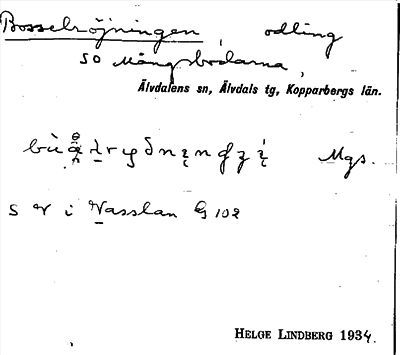 Bosselröjningen, odling
SO Mångsbodarna,
Älvdalens sn, Älvdals tg, Kopparbergs län.
Mgs.
S V i Vasslan G 102
HELGE LINDBERG 1934.